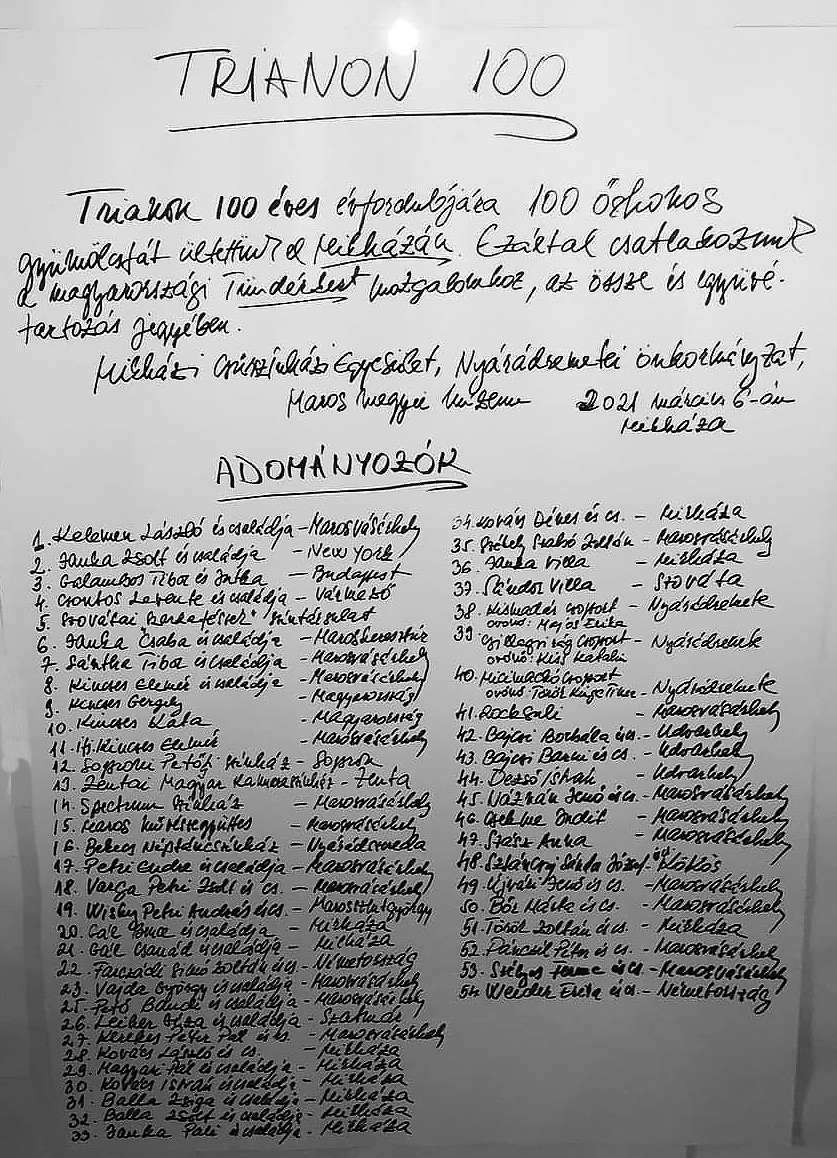 TRIANON 100
Trianon 100 éves évfordulójára 100 őshonos
gyümölcsfát ültettünk el Mikházán. Ezáltal csatlakozunk
a magyarországi Tündérkert mozgalomhoz, az össze és együvé-
tartozás jegyében.
Mikházi Csűrszínházi Egyesület, Nyárádremetei önkormányzat,
Maros megyei múzeum 2021 március 6-án
Mikháza
ADOMÁNYOZÓK
1. Kelemen László és családja - Marosvásárhely
2. Janka Zsolt és családja - New York
3. Galambos Tibor és Jutka - Budapest
4. Csontos Levente és családja - Vármező
5. Szovátai
6. Janka Csaba és családja - Maroskeresztúr
7. Sántha Tibor és családja - Marosvásárhely
8. Kincses Elemér és családja - Marosvásárhely
9. Kincses Gergely - Magyarország
10. Kincses Kata - Magyarország
11. Ifj. Kincses Elemér - Marosvásárhely
12. Soproni Petőfi színház - Sopron
13. Zentai Magyar Kamaraszínház - Zenta
14. Spectrum Színház - Marosvásárhely
15. Maros művészegyüttes - Marosvásárhely
16. Bekecs Néptáncszínház - Nyárádszereda
17. Petri Endre és családja - Marosvásárhely
18. Varga Petri Zsolt és cs. - Marosvásárhely
19. Wisky Petri András és cs. - Marosszentgyörgy
20. Gál és családja - Mikháza
21. Gál Csanád és családja - Mikháza
22. Farczádi Zoltán és cs. - Németország
23. Vajda György és családja - Marosvásárhely
25. Pető és családja - Marosvásárhely
26. Leiber és családja - Szatmár
27. Kerekes Péter Pál és cs. - Marosvásárhely
28. Kovács László és cs. - Mikháza
29. Magyari Pál és családja - Mikháza
30. Kovács István és családja - Mikháza
31. Balla Zsiga és családja - Mikháza
32. Balla Zsolt és családja - Mikháza
33. Janka Pali és családja - Mikháza
34. Kovács Dénes és cs. - Mikháza
35. Székely Szabó Zoltán - Marosvásárhely
36. Janka Villa - Mikháza
37. Sándor Villa - Szováta
38. csoport - Nyárádremete
óvónő: Erika
39. Csillagvirág csoport - Nyárádremete
óvónő: Kiss Katalin
40. Micimackó csoport
óvónő: Török - Nyárádremete
41. Rocksuli - Marosvásárhely
42. Bajcsi Borbála és cs. - Udvarhely
43. Bajcsi Barni és cs. - Udvarhely
44. Dezső István - Udvarhely
45. Jenő és cs. - Marosvásárhely
46. Judit - Marosvásárhely
47. Szász Anna - Marosvásárhely
48. Sánta József - Kökös
49. Újvári Jenő és cs. - Marosvásárhely
50. Bőr Márta és cs. - Marosvásárhely
51. Török Zoltán és cs. - Mikháza
52. Pánczél Péter és cs. - Marosvásárhely
53. Ferenc és cs. - Marosvásárhely
54. Weider és cs. - Németország